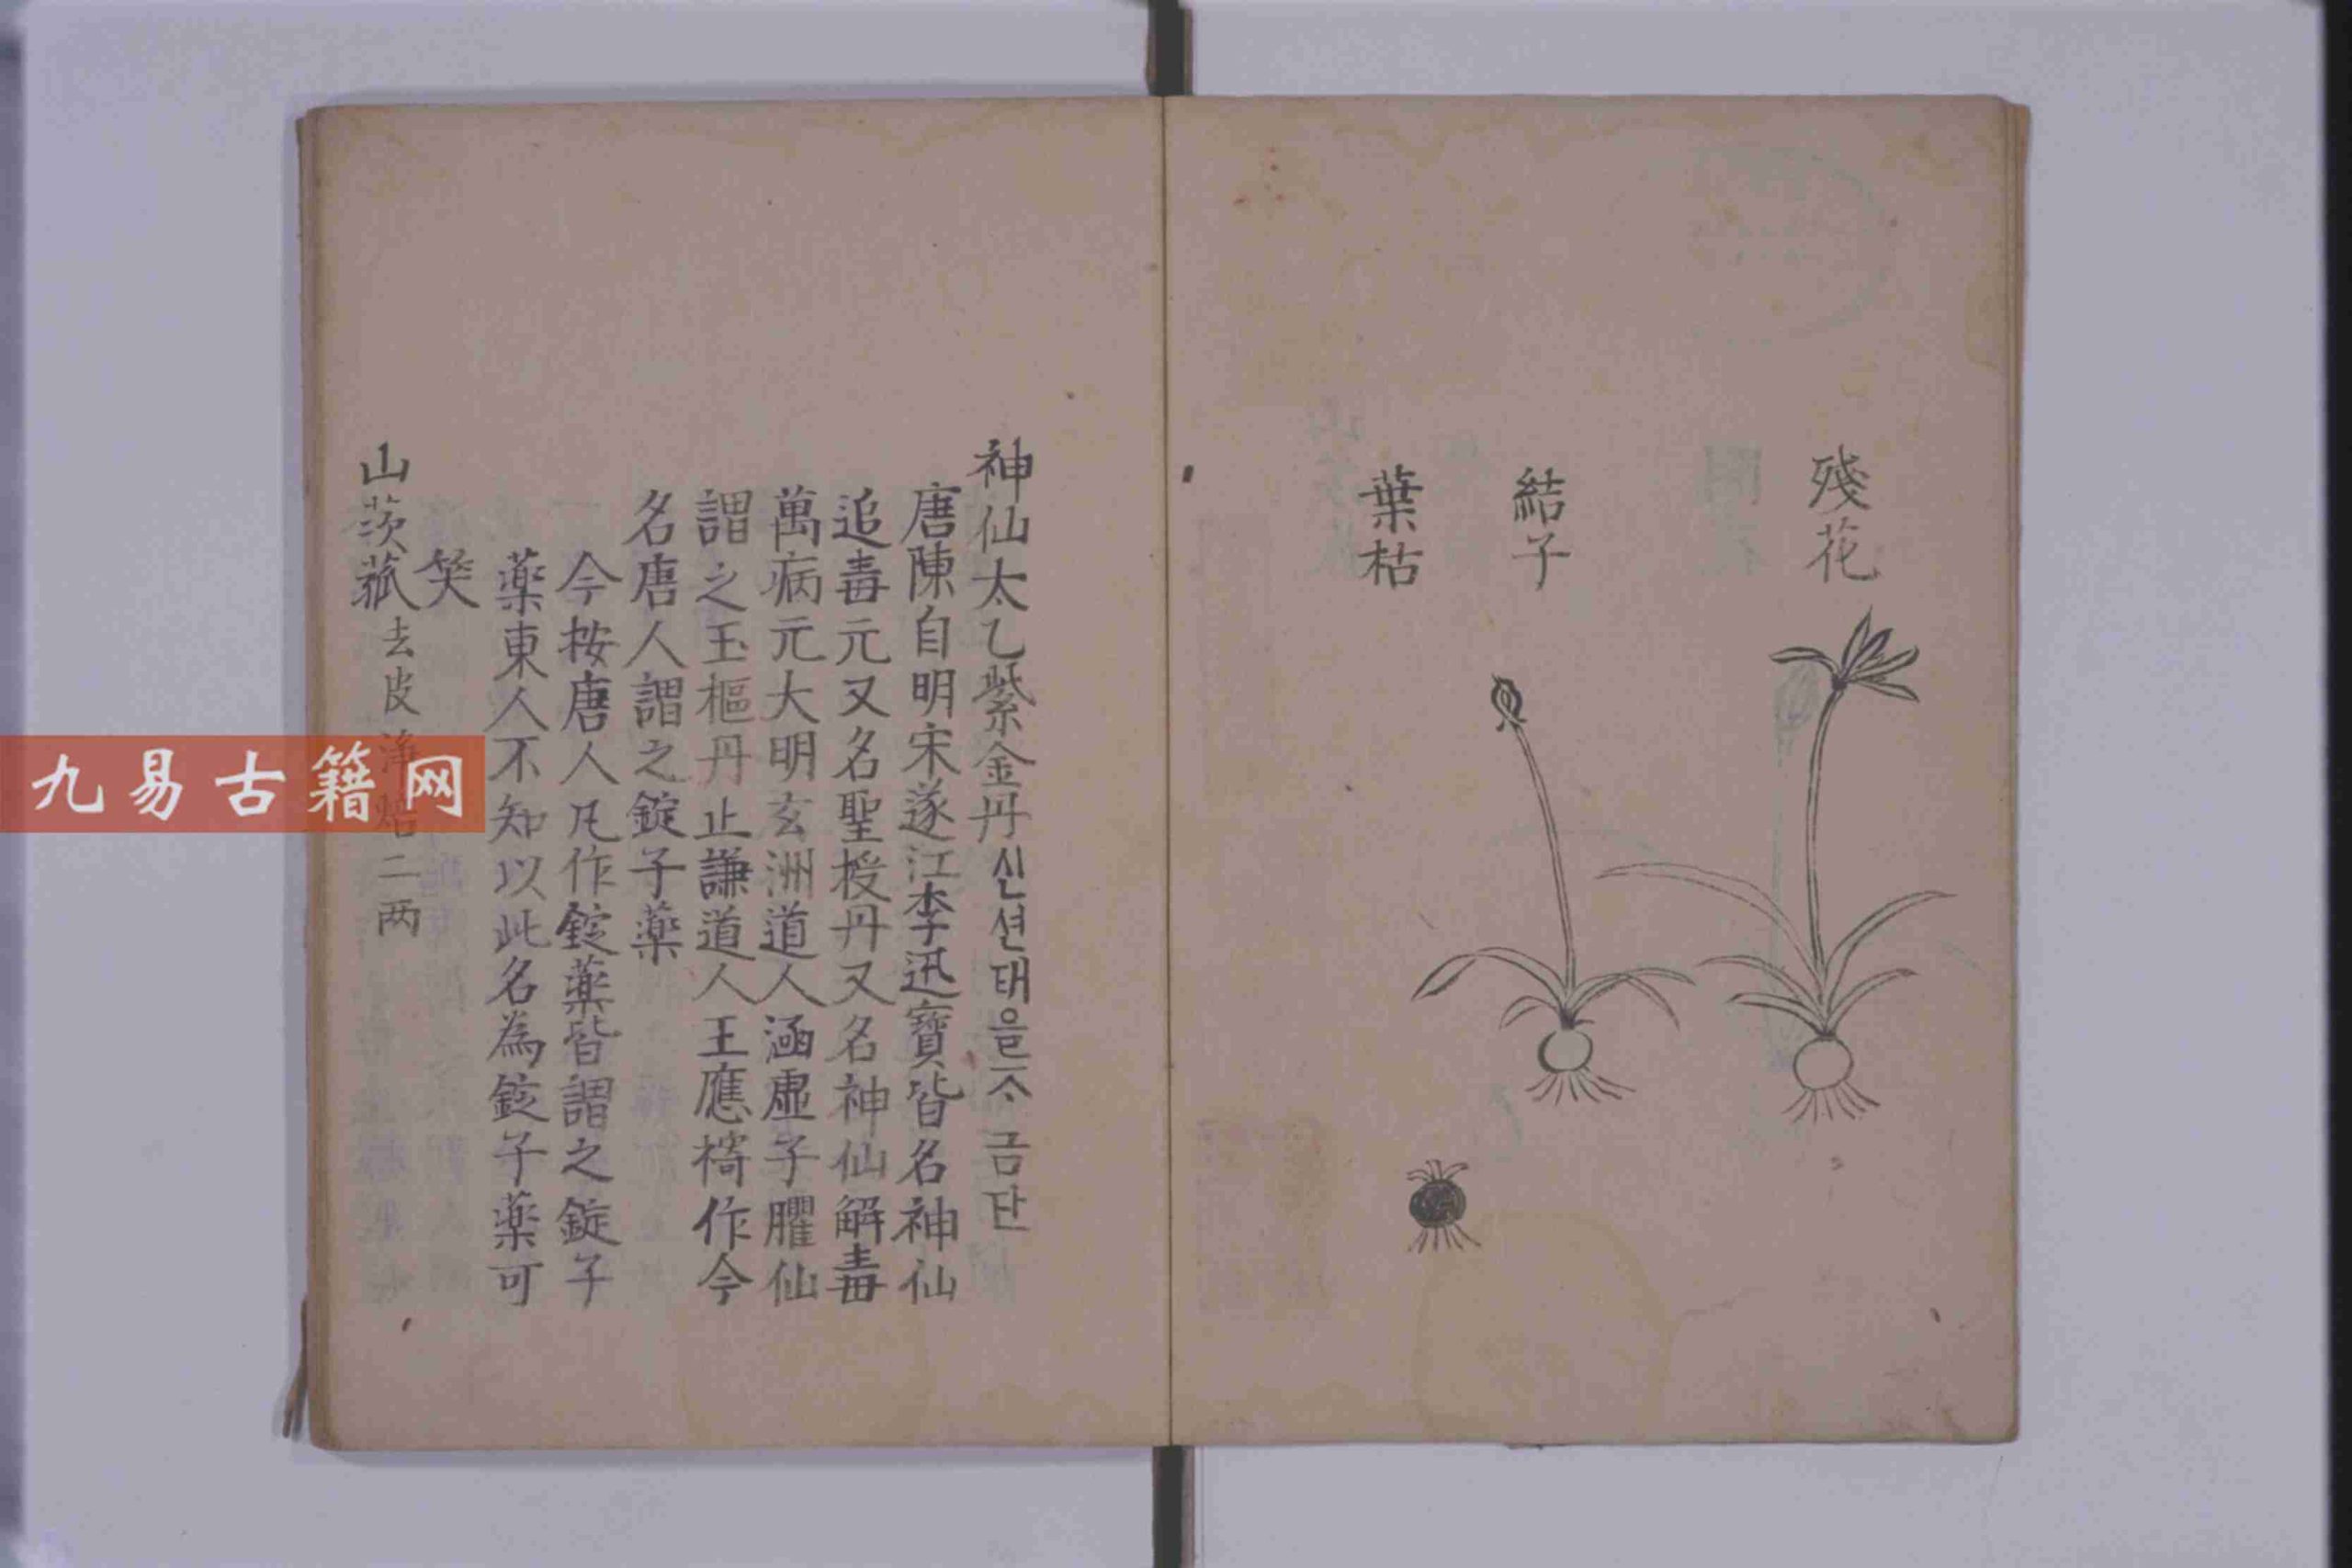 殘花
結子
葉枯
神仙太乙紫金丹신션태을ᄌᆞ금단
唐陳自明宋遂江李迅寶皆名神仙
追毒元又名聖授丹又名神仙解毒
萬病元大明玄洲道人涵虛子臞仙
謂之玉樞丹止謙道人王應 作今
名唐人謂之錠子藥
今按唐人凡作錠藥皆謂之錠子
藥東人不知以此名為錠子藥可
笑
山茨菰去皮淨焙二两
九易古籍网